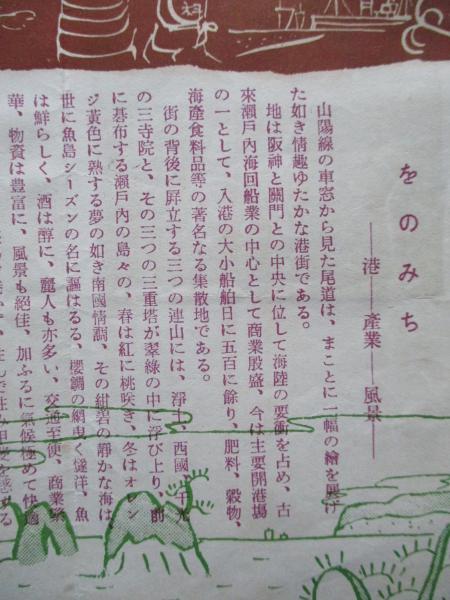 をのみち
──港──產業──風景──
山陽線の車窓から見た尾道は、まことに一幅の繪を展げ
た如き情趣ゆたかな港街である。
地は阪神と關門との中央に位して海陸の要衝を占め、古
來瀨戶內海回船業の中心として商業殷盛、今は主要開港場
の一として、入港の大小船舶日に五百に餘り、肥料、穀物、
海產食料品等の著名なる集散地である。
街の背後に屛立する三つの連山には、淨土、西國、千光
の三寺院と、その三つの三重塔が翠綠の中に浮び上り、前
に碁布する瀨戶內の島々の、春は紅に桃咲き、冬はオレン
ジ黃色に熟する夢の如き南國情調、その紺碧の靜かな海は
世に魚島シーズンの名に謳はるる、櫻鯛の網曳く盛洋、魚
は鮮らしく、酒は醇に、麗人も亦多い、交通至便、商業繁
華、物資は豊富に、風景も絕佳、加ふるに氣候極めて快適